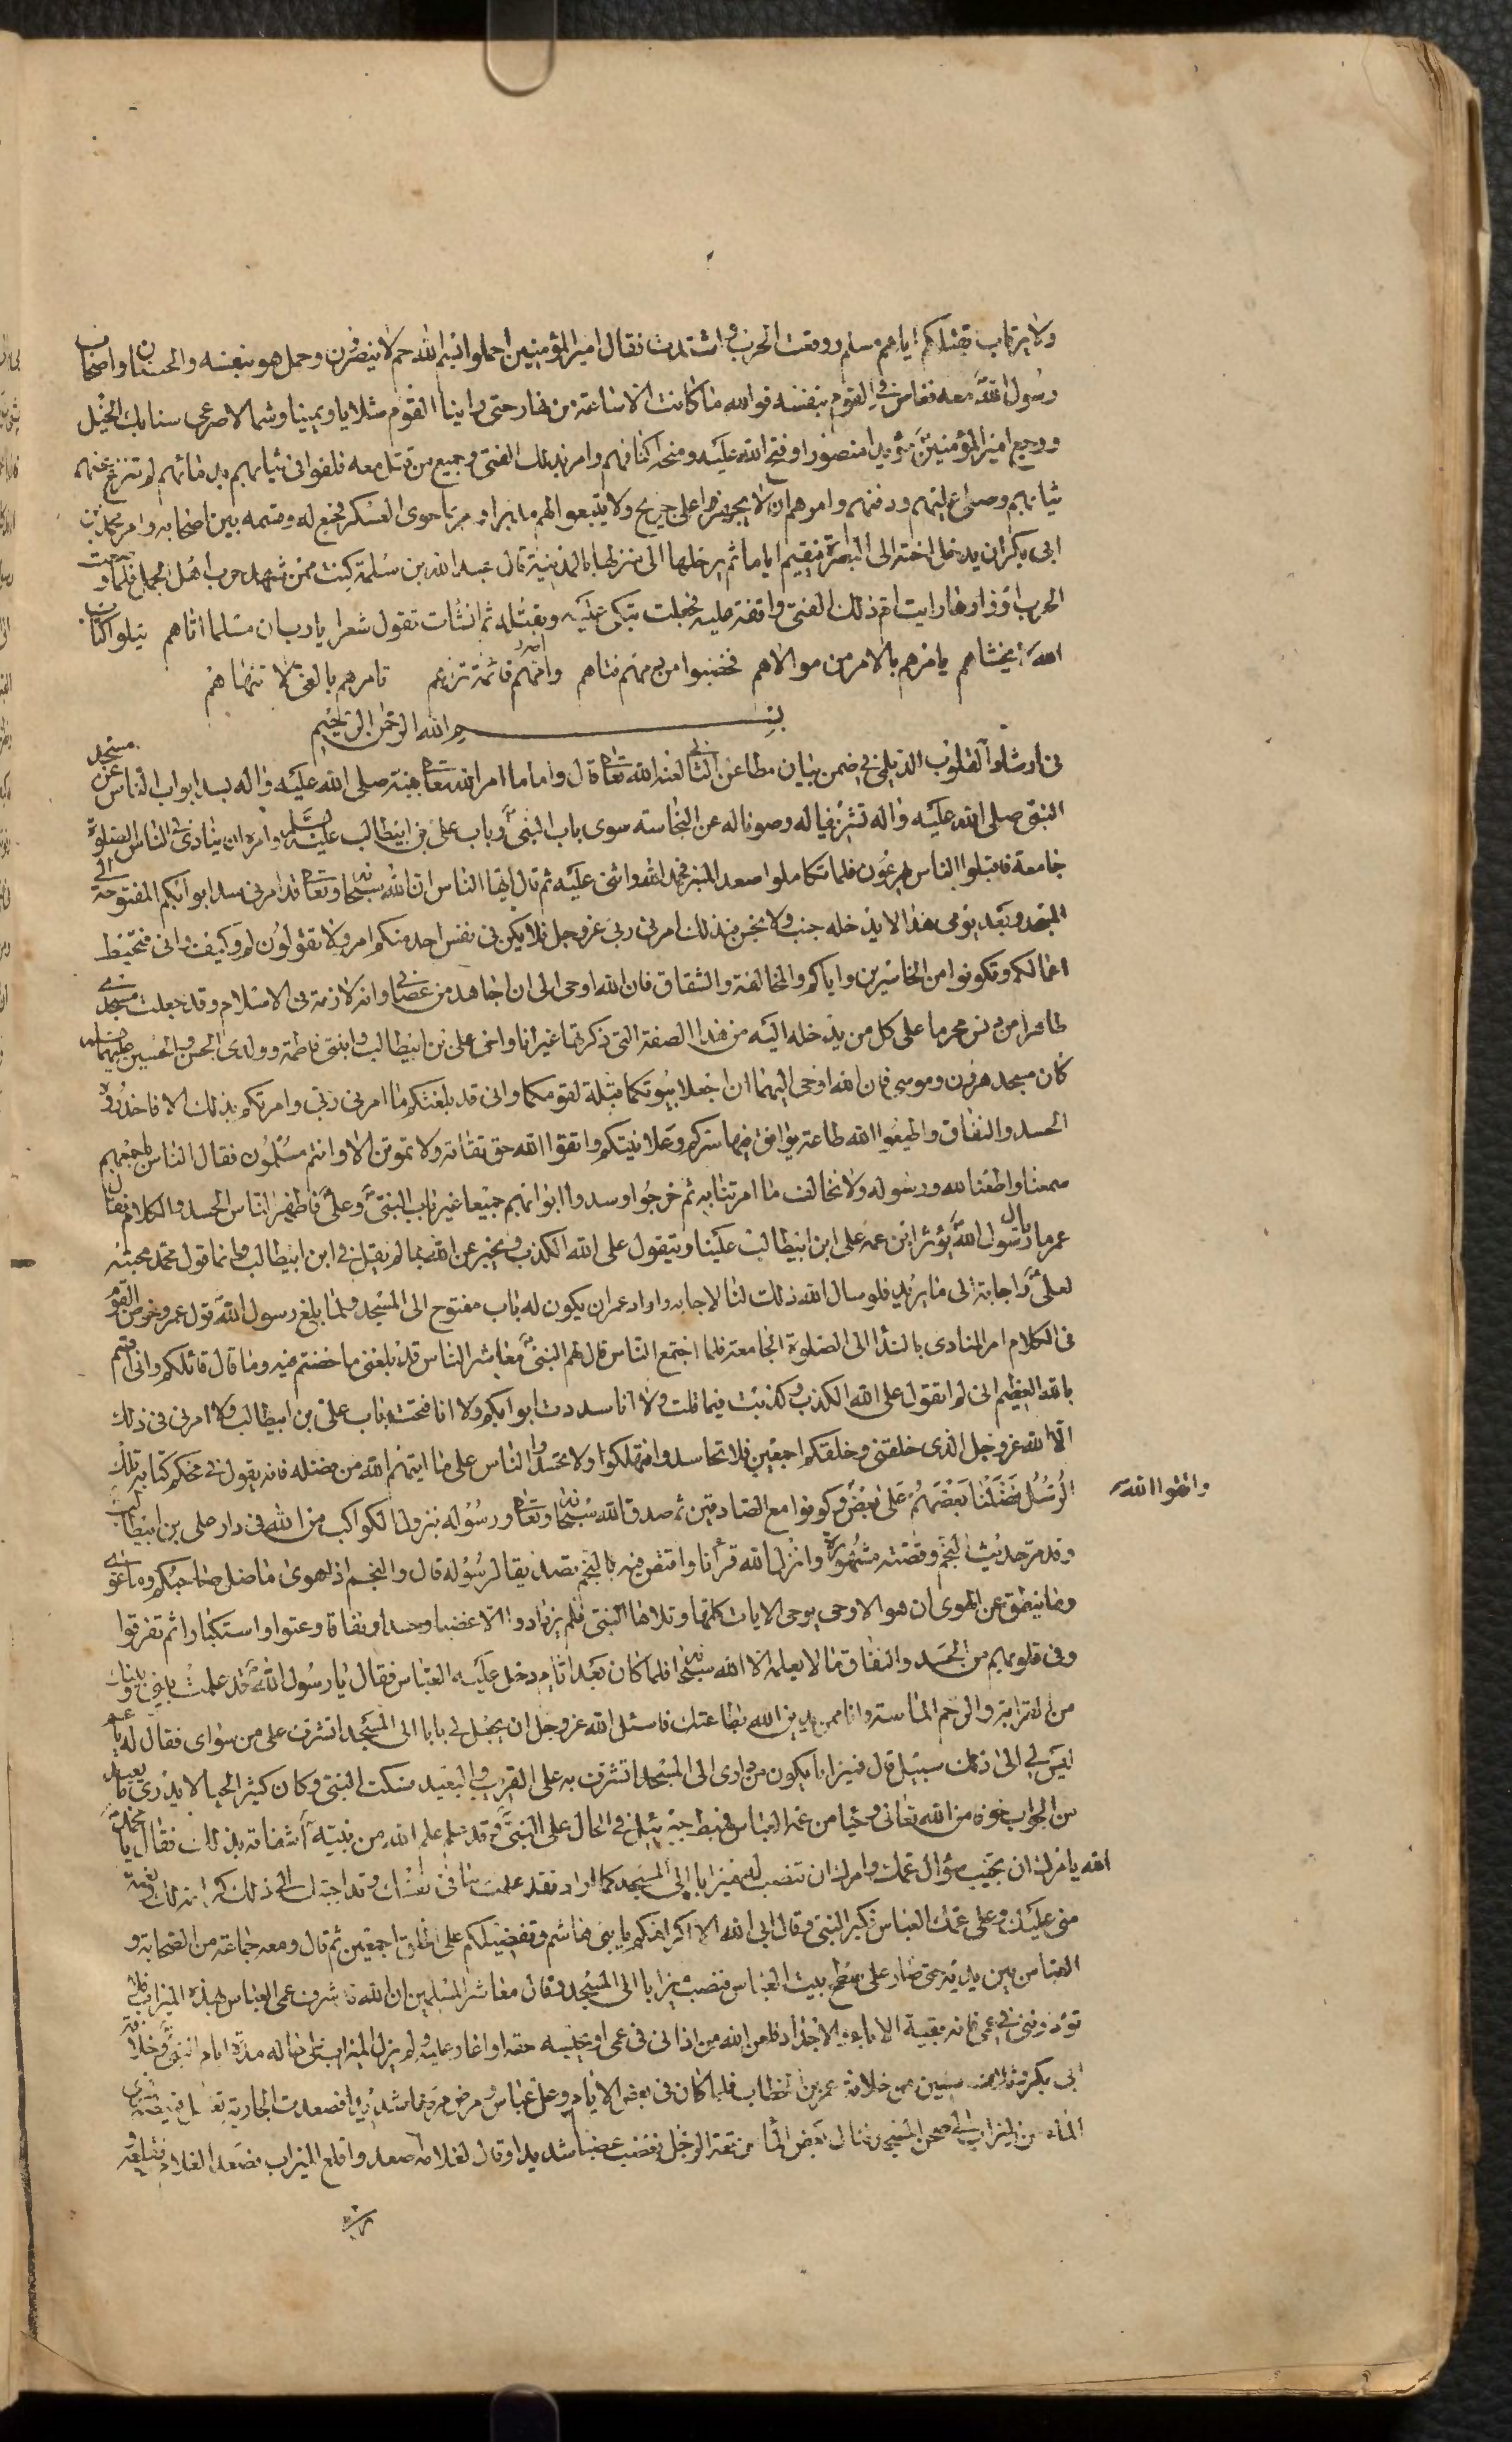 ولارتكاب قتلكم اياهم مسلم ووقعت الحرب واشتدت فقال امير المؤمنين احملوا بسم الله حم لا ينصرون وحمل هو بنفسه والحسنان واصحاب
رسول الله معه فغاص في القوم بنفسه فوالله ما كانت الا ساعة من نهار حتى راينا القوم شلايا ويمينا وشمالا صرعى سنابك الخيل
ورجع امير المؤمنين مؤيدا منصورا وفتح الله عليه ومنحه اكتافهم وامر بذلك الفتى وجميع من قتل معه فلفوا في ثيابهم بدمائهم لم تنزع عنهم
ثيابهم وصلى عليهم ودفنهم وامرهم ان لا يجهزوا على جريح ولا يتبعوا لهم مدبرا وامر بما حوى العسكر فجمع له وقسمه بين اصحابه وامر محمد بن
ابي بكر ان يدخل اخته الى البصرة فيقيم اياما ثم يرحلها الى منزلها بالمدينة قال عبد الله بن سلمة كنت ممن شهد حرب اهل الجمل فلما وضعت
الحرب اوزارها رايت ام ذلك الفتى واقفة عليه فجعلت تبكي عليه وتقبله ثم انشات تقول شعرا يا رب ان مسلما اتاهم يتلو كتاب
الله لا يخشاهم يامرهم بالامر من مولاهم فخضبوا من دمه قناهم وامهم قائمة تراهم تامرهم بالغي لا تنهاهم
بسم الله الرحمن الرحيم
في ارشاد القلوب الديلمي في ضمن بيان مطاعن الثاني لعنه الله تعالى قال واما ما امر الله تعالى نبيه صلى الله عليه واله بسد ابواب الناس عن مسجد
النبي صلى الله عليه واله تشريفا له وصونا له عن النجاسة سوى باب النبي وباب علي بن ابيطالب عليه السلم وامره ان ينادي في الناس الصلوة
جامعة فاقبلوا الناس يهرعون فلما تكاملوا صعد المنبر فحمد الله واثنى عليه ثم قال ايها الناس ان الله سبحانه وتعالى قد امرني بسد ابوابكم المفتوحة الى
المسجد وبعد يومي هذا لا يدخله جنب ولا نجس بذلك امرني ربي عز وجل فلا يكن في نفس احد منكم امر ولا تقولون لم وكيف واني فتحبط
اعمالكم وتكونوا من الخاسرين واياكم والمخالفة والشقاق فان الله اوحى الي ان اجاهد من عصاني وانه لا ذمة في الاسلام وقد جعلت مسجدي
طاهرا من دنس محرما على كل من يدخله اليه من هذه الصفة التي ذكرتها غير انا واخي علي بن ابيطالب وابنتي فاطمة وولدي الحسن والحسين عليهم السلم
كان مسجد هرون وموسى فان الله اوحى اليهما ان اجعلا بيوتكما قبلة لقومكما واني قد بلغتكم ما امرني ربي وامرتكم بذلك الا فاحذروا
الحسد والنفاق واطيعوا الله طاعة يوافق فيها سركم وعلانيتكم واتقوا الله حق تقاته ولا تموتن الا وانتم مسلمون فقال الناس باجمعهم
سمعنا واطعنا لله ورسوله ولا نخالف ما امرتنا به ثم خرجوا وسدوا ابوابهم جميعا غير باب النبي وعلي فاظهر الناس الحسد والكلام فقال
عمر ما بال رسول الله يؤثر ابن عمه علي ابن ابيطالب علينا ويتقول على الله الكذب ويخبر عن الله بما لم يقل في ابن ابيطالب وانما قول محمد محبة
لعلي واجابة الى ما يريد فلو سال الله ذلك لنا لاجابه واراد عمر ان يكون له باب مفتوح الى المسجد ولما بلغ رسول الله قول عمر وخوض القوم
في الكلام امر المنادي بالندا الى الصلوة الجامعة فلما اجتمع الناس قال لهم النبي معاشر الناس قد بلغني ما خضتم فيه وما قال قائلكم واني اقسم
بالله العظيم اني لم اتقول على الله الكذب وكذبت فيما قلت ولا انا سددت ابوابكم ولا انا فتحت باب علي بن ابيطالب ولا امرني في ذلك
الا الله عز وجل الذي خلقني وخلقكم اجمعين فلا تحاسدوا فتهلكوا ولا تحسدوا الناس على ما اتيهم الله من فضله فانه يقول في محكم كتابه تلك
الرسل فضلنا بعضهم على بعض وكونوا مع الصادقين ثم صدق الله سبحانه وتعالى ورسوله بنزول الكواكب من الله في دار علي بن ابيطالب
واتقوا الله
وقد مر حديث النجم وقصته مشهورة وانزل الله قرانا واقتص فيه بالنجم تصديقا لرسوله قال والنجم اذا هوى ما ضل صاحبكم وما غوى
وما ينطق عن الهوى ان هو الا وحي يوحى الايات كلها وتلاها النبي فلم يزدادوا الا غضبا وحسدا ونفاقا وعتوا واستكبارا ثم تفرقوا
وفي قلوبهم من الحسد والنفاق ما لا يعلمه الا الله سبحانه فلما كان بعد ايام دخل عليه العباس فقال يا رسول الله قد علمت ما بيني وبينك
من القرابة والرحم الماسة وانا ممن يدين الله بطاعتك فاسئل الله عز وجل ان يجعل لي بابا الى المسجد اتشرف على من سواي فقال له يا عم
ليس لي الى ذلك سبيل قال فميزابا يكون من داري الى المسجد اتشرف به على القريب والبعيد فسكت النبي وكان كثير الحيا لا يدري ما يعيد
من الجواب خوفا من الله تعالى وحيا من عمه العباس فهبط جبرئيل في الحال على النبي وقد علم الله من نبيه اشفاقه بذلك فقال يا محمد
الله يامرك ان تجيب سؤال عمك وامرك ان تنصب له ميزابا الى المسجد كما اراد فقد علمت ما في نفسك وقد اجبتك الى ذلك كرامة لك ونعمة
مني عليك وعلى عمك العباس فكبر النبي وقال ابى الله الا اكرامكم يا بني هاشم وتفضيلكم على الخلق اجمعين ثم قال ومعه جماعة من الصحابة و
العباس بين يديه حتى صار على سطح بيت العباس فنصب ميزابا الى المسجد وقال معاشر المسلمين ان الله قد شرف عمي العباس بهذه الميزاب فلا
تؤذونني في عمي فانه بقية الاباء والاجداد فلعن الله من اذاني في عمي او بخسه حقه او اغار عليه ولم يزل الميزاب على حاله مدة ايام النبي وخلافة
ابي بكر وثلث سنين من خلافة عمر بن الخطاب فلما كان في بعض الايام وعك عباس ومرض مرضا شديدا فصعدت الجارية تغسل قميصه فجرى
الماء من الميزاب الى صحن المسجد فنال بعض الماء من مرقعة الرجل فغضب غضبا شديدا وقال لغلامه اصعد واقلع الميزاب فصعد الغلام فقلعه